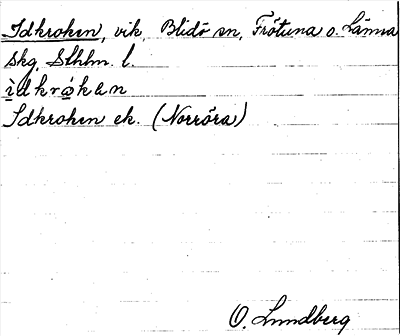 Idkroken, vik, Blidö sn, Frötuna o. Länna
skg, Sthlm. l.
ìdkrǫ́kən
Idkroken ek. (Norröra)
O. Lundberg